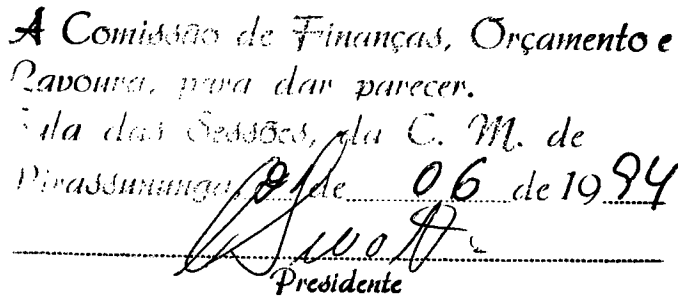 A Comissão de Finanças, Orçamento e
Lavoura, para dar parecer.
Sala das Sessões, da C. M. de
Pirassununga, de 06 de 1994
Presidente